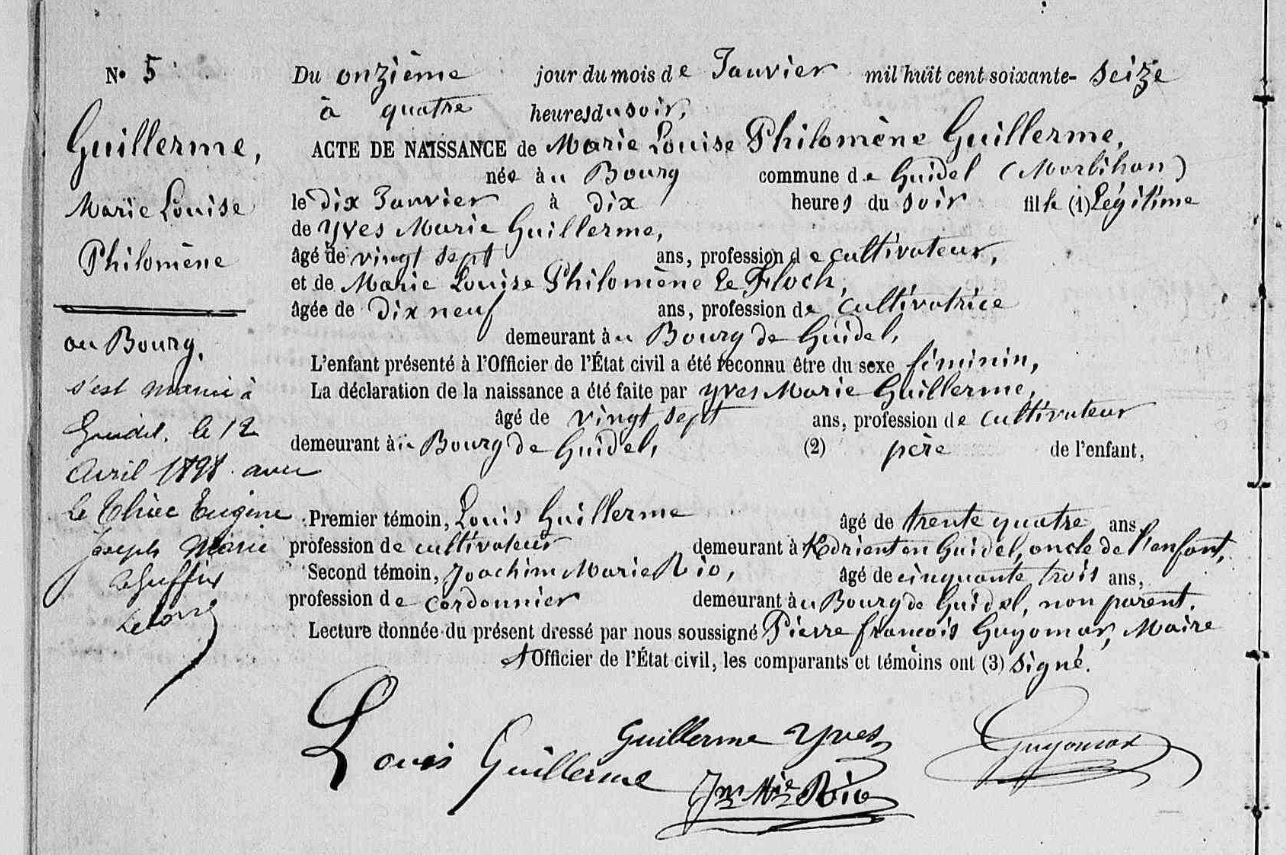 N° 5
Guillerme,
Marie Louise
Philomène
au Bourg.
s'est mariée à
Guidel, le 12
Avril 1898 avec
Le Thiec Eugène
Joseph Marie
Le Greffier
Du onzième jour du mois de Janvier mil huit cent soixante- seize
à quatre heures du soir,
ACTE DE NAISSANCE de Marie Louise Philomène Guillerme,
née au Bourg commune de Guidel (Morbihan)
le dix Janvier à dix heures du soir fille (1) Légitime
de Yves Marie Guillerme,
âgé de vingt sept ans, profession de cultivateur,
et de Marie Louise Philomène Le Floch,
âgée de dix neuf ans, profession de cultivatrice
demeurant au Bourg de Guidel,
L'enfant présenté à l'Officier de l'État civil a été reconnu être du sexe féminin,
La déclaration de la naissance a été faite par Yves Marie Guillerme,
âgé de vingt sept ans, profession de cultivateur
demeurant au Bourg de Guidel, (2) père de l'enfant,
Premier témoin, Louis Guillerme âgé de trente quatre ans,
profession de cultivateur demeurant à Kdrient en Guidel, oncle de l'enfant,
Second témoin, Joachim Marie Rio, âgé de cinquante trois ans,
profession de cordonnier demeurant au Bourg de Guidel, non parent.
Lecture donnée du présent dressé par nous soussigné Pierre françois Guyomar, Maire
Officier de l'État civil, les comparants et témoins ont (3) signé.
Guillerme Yves
Guyomar
Louis Guillerme
Jm Mie Rio